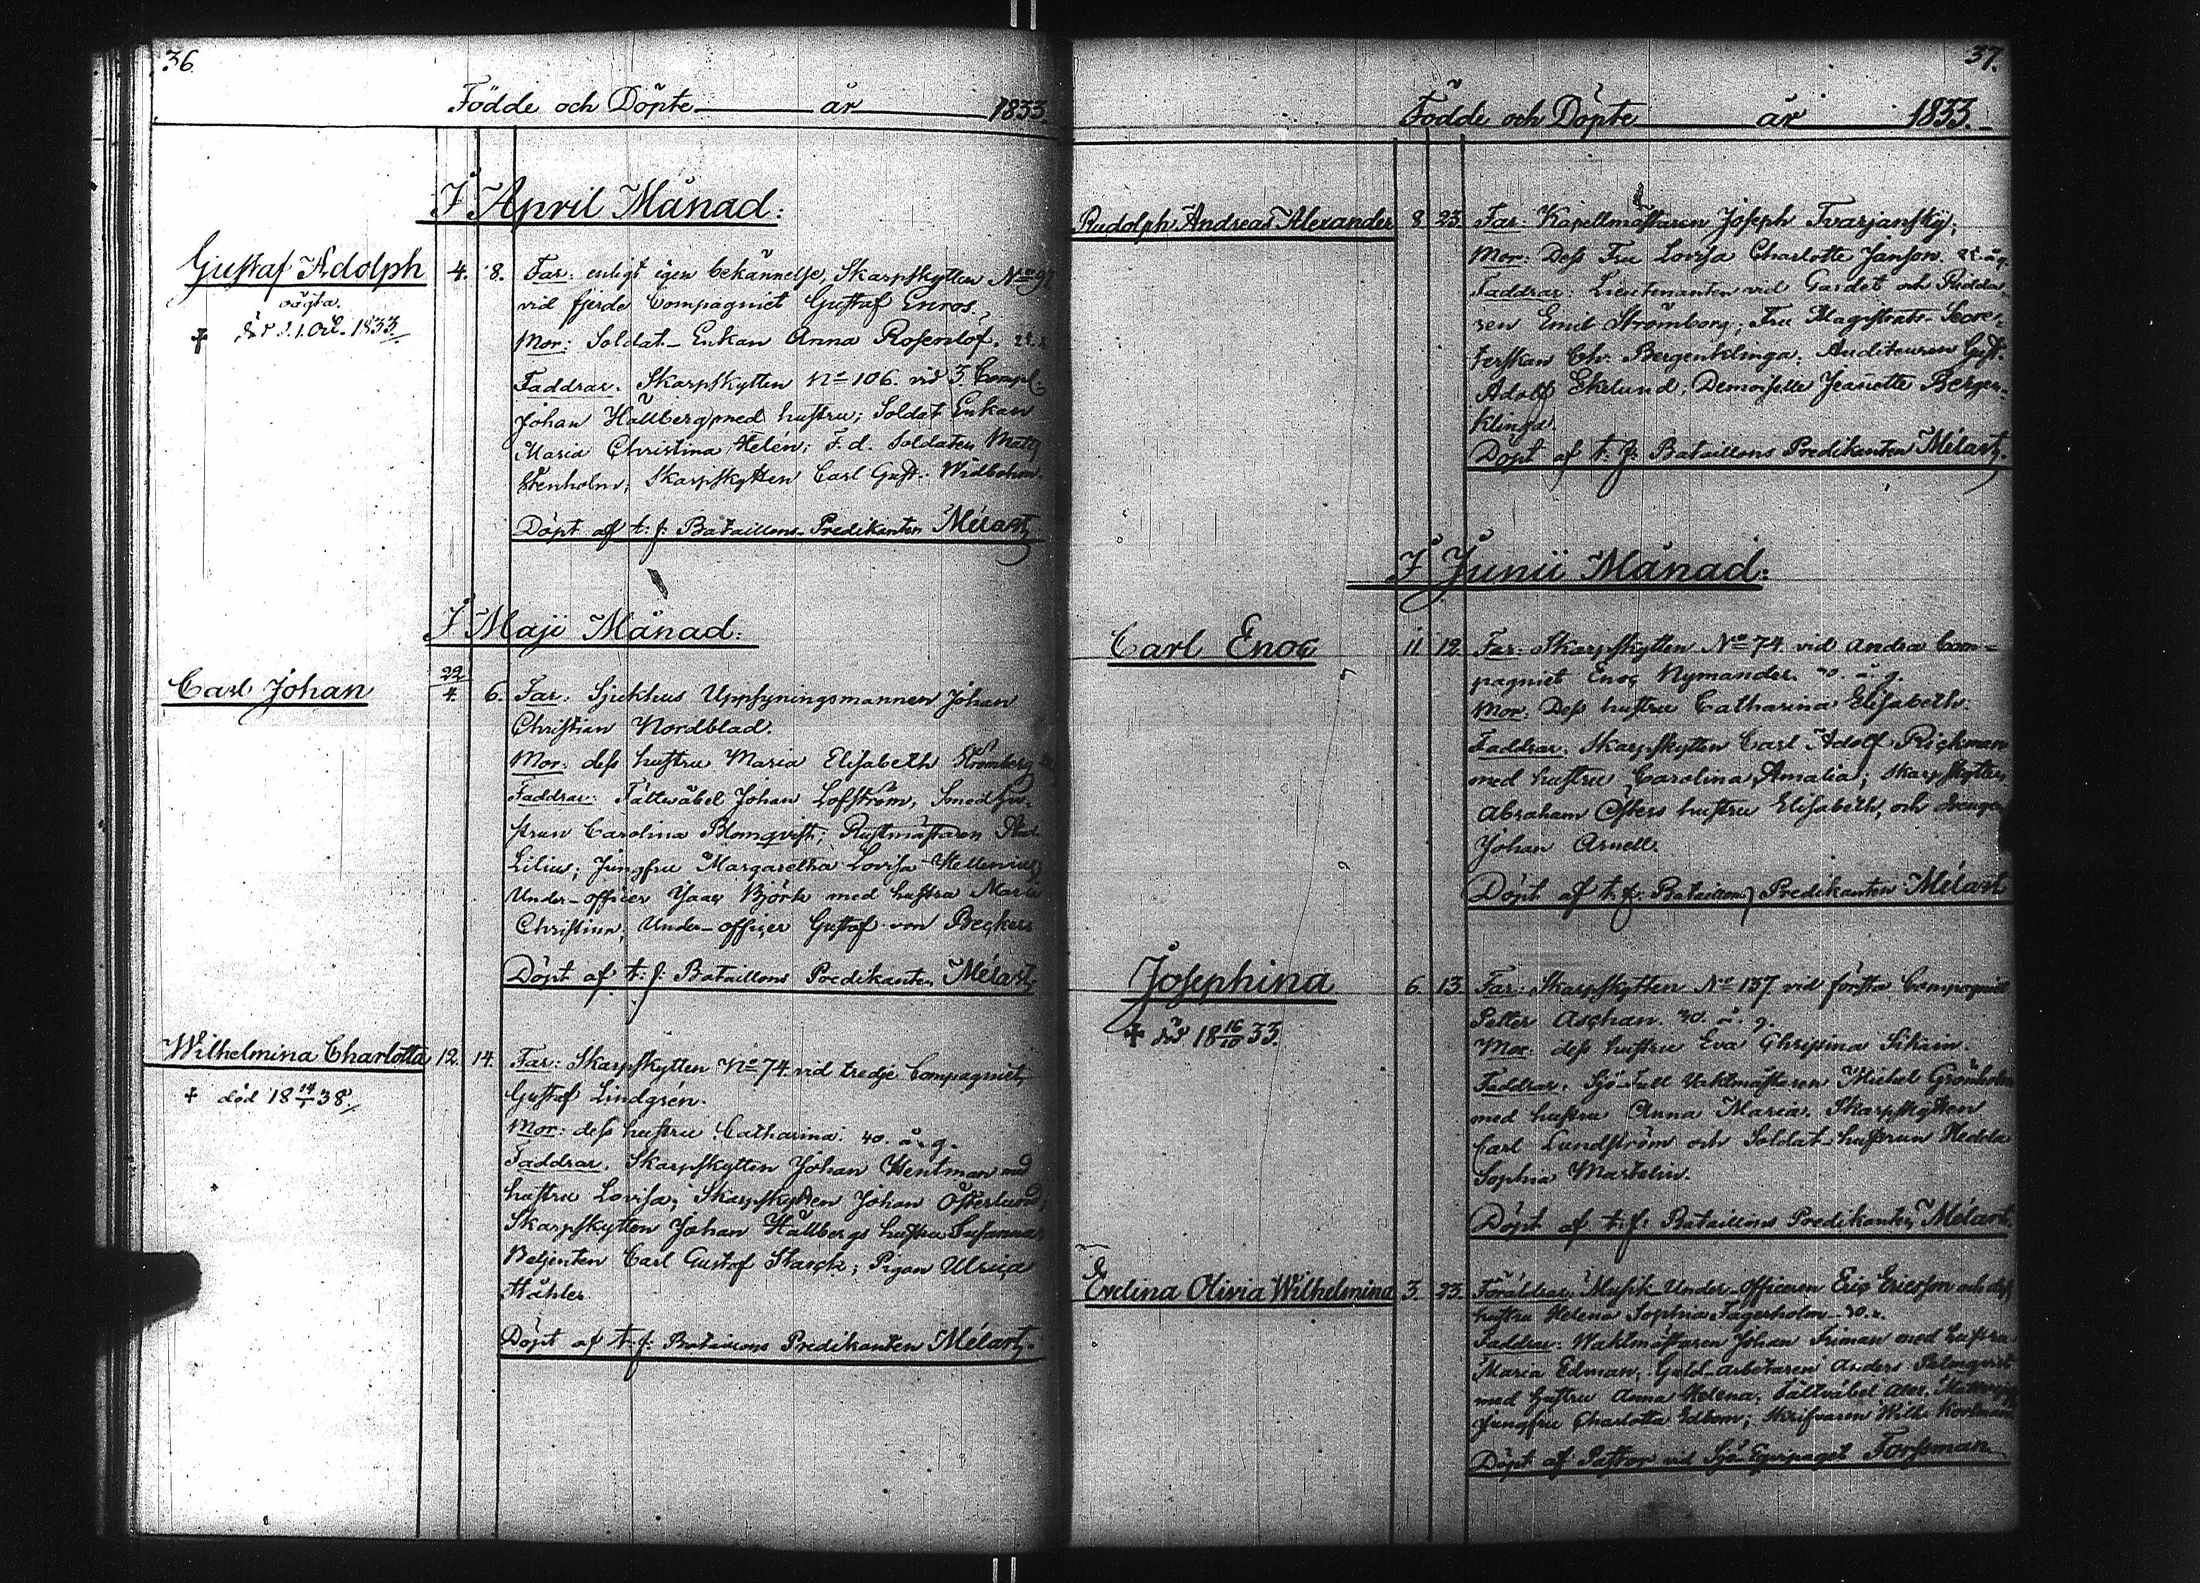 36.
Födde och Döpte år 1833.
I April Månad:
Gustaf Adolph 4. 8. Far: enligt egen bekännelse, Skarpskytten No 97
oägta. vid fjerde Compagniet Gustaf Enros.
† Död 1833
Mor: Soldat-Enkan Anna Rosenlöf.
Faddrar. Skarpskytten No 106. vid 3. Comp.
Johan Hallberg med hustru; Soldat Enkan
Maria Christina Helen; F. d. Soldaten Matts
Stenholm, Skarpskytten Carl Gust. Widbohm.
Döpt af t. f. Bataillons-Predikanten Mélart.
I Maji Månad:
Carl Johan 22/4. 6. Far: Sjukhus Uppsyningsmannen Johan
Christian Nordblad.
Mor: dess hustru Maria Elisabeth Strömberg
Faddrar: Fältwäbel Johan Löfström, Smed Hu-
strun Carolina Blomqvist; Rustmästaren
Lilius; Jungfru Margaretha Lovisa Hellenius;
Under-officer Isaac Björk med hustru Maria
Christina, Under-officer Gustaf von Becker.
Döpt af t. f. Bataillons Predikanten Mélart.
Wilhelmina Charlotta 12. 14. Far: Skarpskytten No 74. vid tredje Compagniet,
Gustaf Lindgrén.
† död 18 14/1 38.
Mor: dess hustru Catharina. 40. å. g.
Faddrar. Skarpskytten Johan Hentman med
hustru Lovisa; Skarpskytten Johan Österlund,
Skarpskytten Johan Hallbergs hustru Susanna,
Betjenten Carl Gustaf Starck; Pigan Ulrica
Ståhler.
Döpt af t. f. Bataillons Predikanten Mélart.
37.
Födde och Döpte år 1833.
Rudolph Andreas Alexander 8. 23. Far: Kapellmästaren Joseph Tvarjansky;
Mor: Dess Fru Lovisa Charlotte Janson.
Faddrar: Lieutenanten vid Gardet och Ridda-
ren Emil Strömborg; Fru Magistrats-Secre-
terskan Ch. Bergenklinga. Auditeuren Gust.
Adolf Ekelund, Demoiselle Jeanette Bergen-
klinga.
Döpt af t. f. Bataillons Predikanten Mélart.
I Junii Månad:
Carl Enoc 11. 12. Far: Skarpskytten No 74 vid andra Com-
pagniet Enoc Nymander. 30. å. g.
Mor: Dess hustru Catharina Elisabeth.
Faddrar. Skarpskytten Carl Adolf Rickman
med hustru Carolina Amalia; Skarpskytten
Abraham Österr hustru Elisabeth, och drengen
Johan Arnell.
Döpt af t. f. Bataillons Predikanten Mélart
Josephina 6. 13. Far: Skarpskytten No 137 vid första Compagniet
Petter Aschan. 30. å. g.
† död 18 16/10 33.
Mor: dess hustru Eva Christina Sikain.
Faddrar. Sjö-Tull Vaktmästaren Michel Grönholm
med hustru Anna Maria. Skarpskytten
Carl Lundström och Soldat-hustrun Hedda
Sophia Martelin.
Döpt af t. f. Bataillons Predikanten Mélart.
Evelina Olivia Wilhelmina 3. 23. Föräldrar. Musik Under-Officeren Eric Ericsson och dess
hustru Helena Sophia Fagerholm
Faddrar: Waktmästaren Johan Siman med hustru
Maria Edman, Guld-arbetaren Anders Palmqvist
med hustru Anna Helena; Fältväbel Alex.
Jungfru Charlotta Edbom; Skrifvaren Wilh.
Döpt af Pastor vid Sjö-Equipaget Forssman